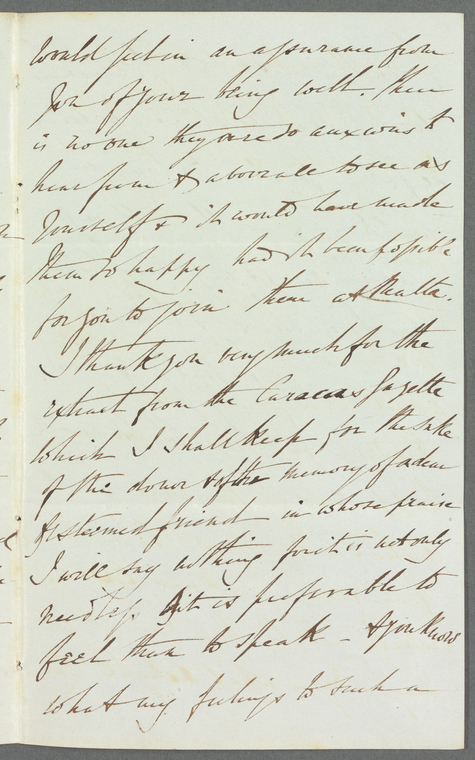 would feel in an assurance from
you of your being well. There
is no one they are so anxious to
hear from & above all to see as
yourself & it would have made
them so happy had it been possible
for you to join them at Malta.
I thank you very much for the
extract from the Caracas Gazette
which I shall keep for the sake
of the donor & of the memory of a dear
& esteemed friend in whose praise
I will say nothing for it is not only
needless but it is preferable to
feel than to speak - & you know
what my feelings to such a